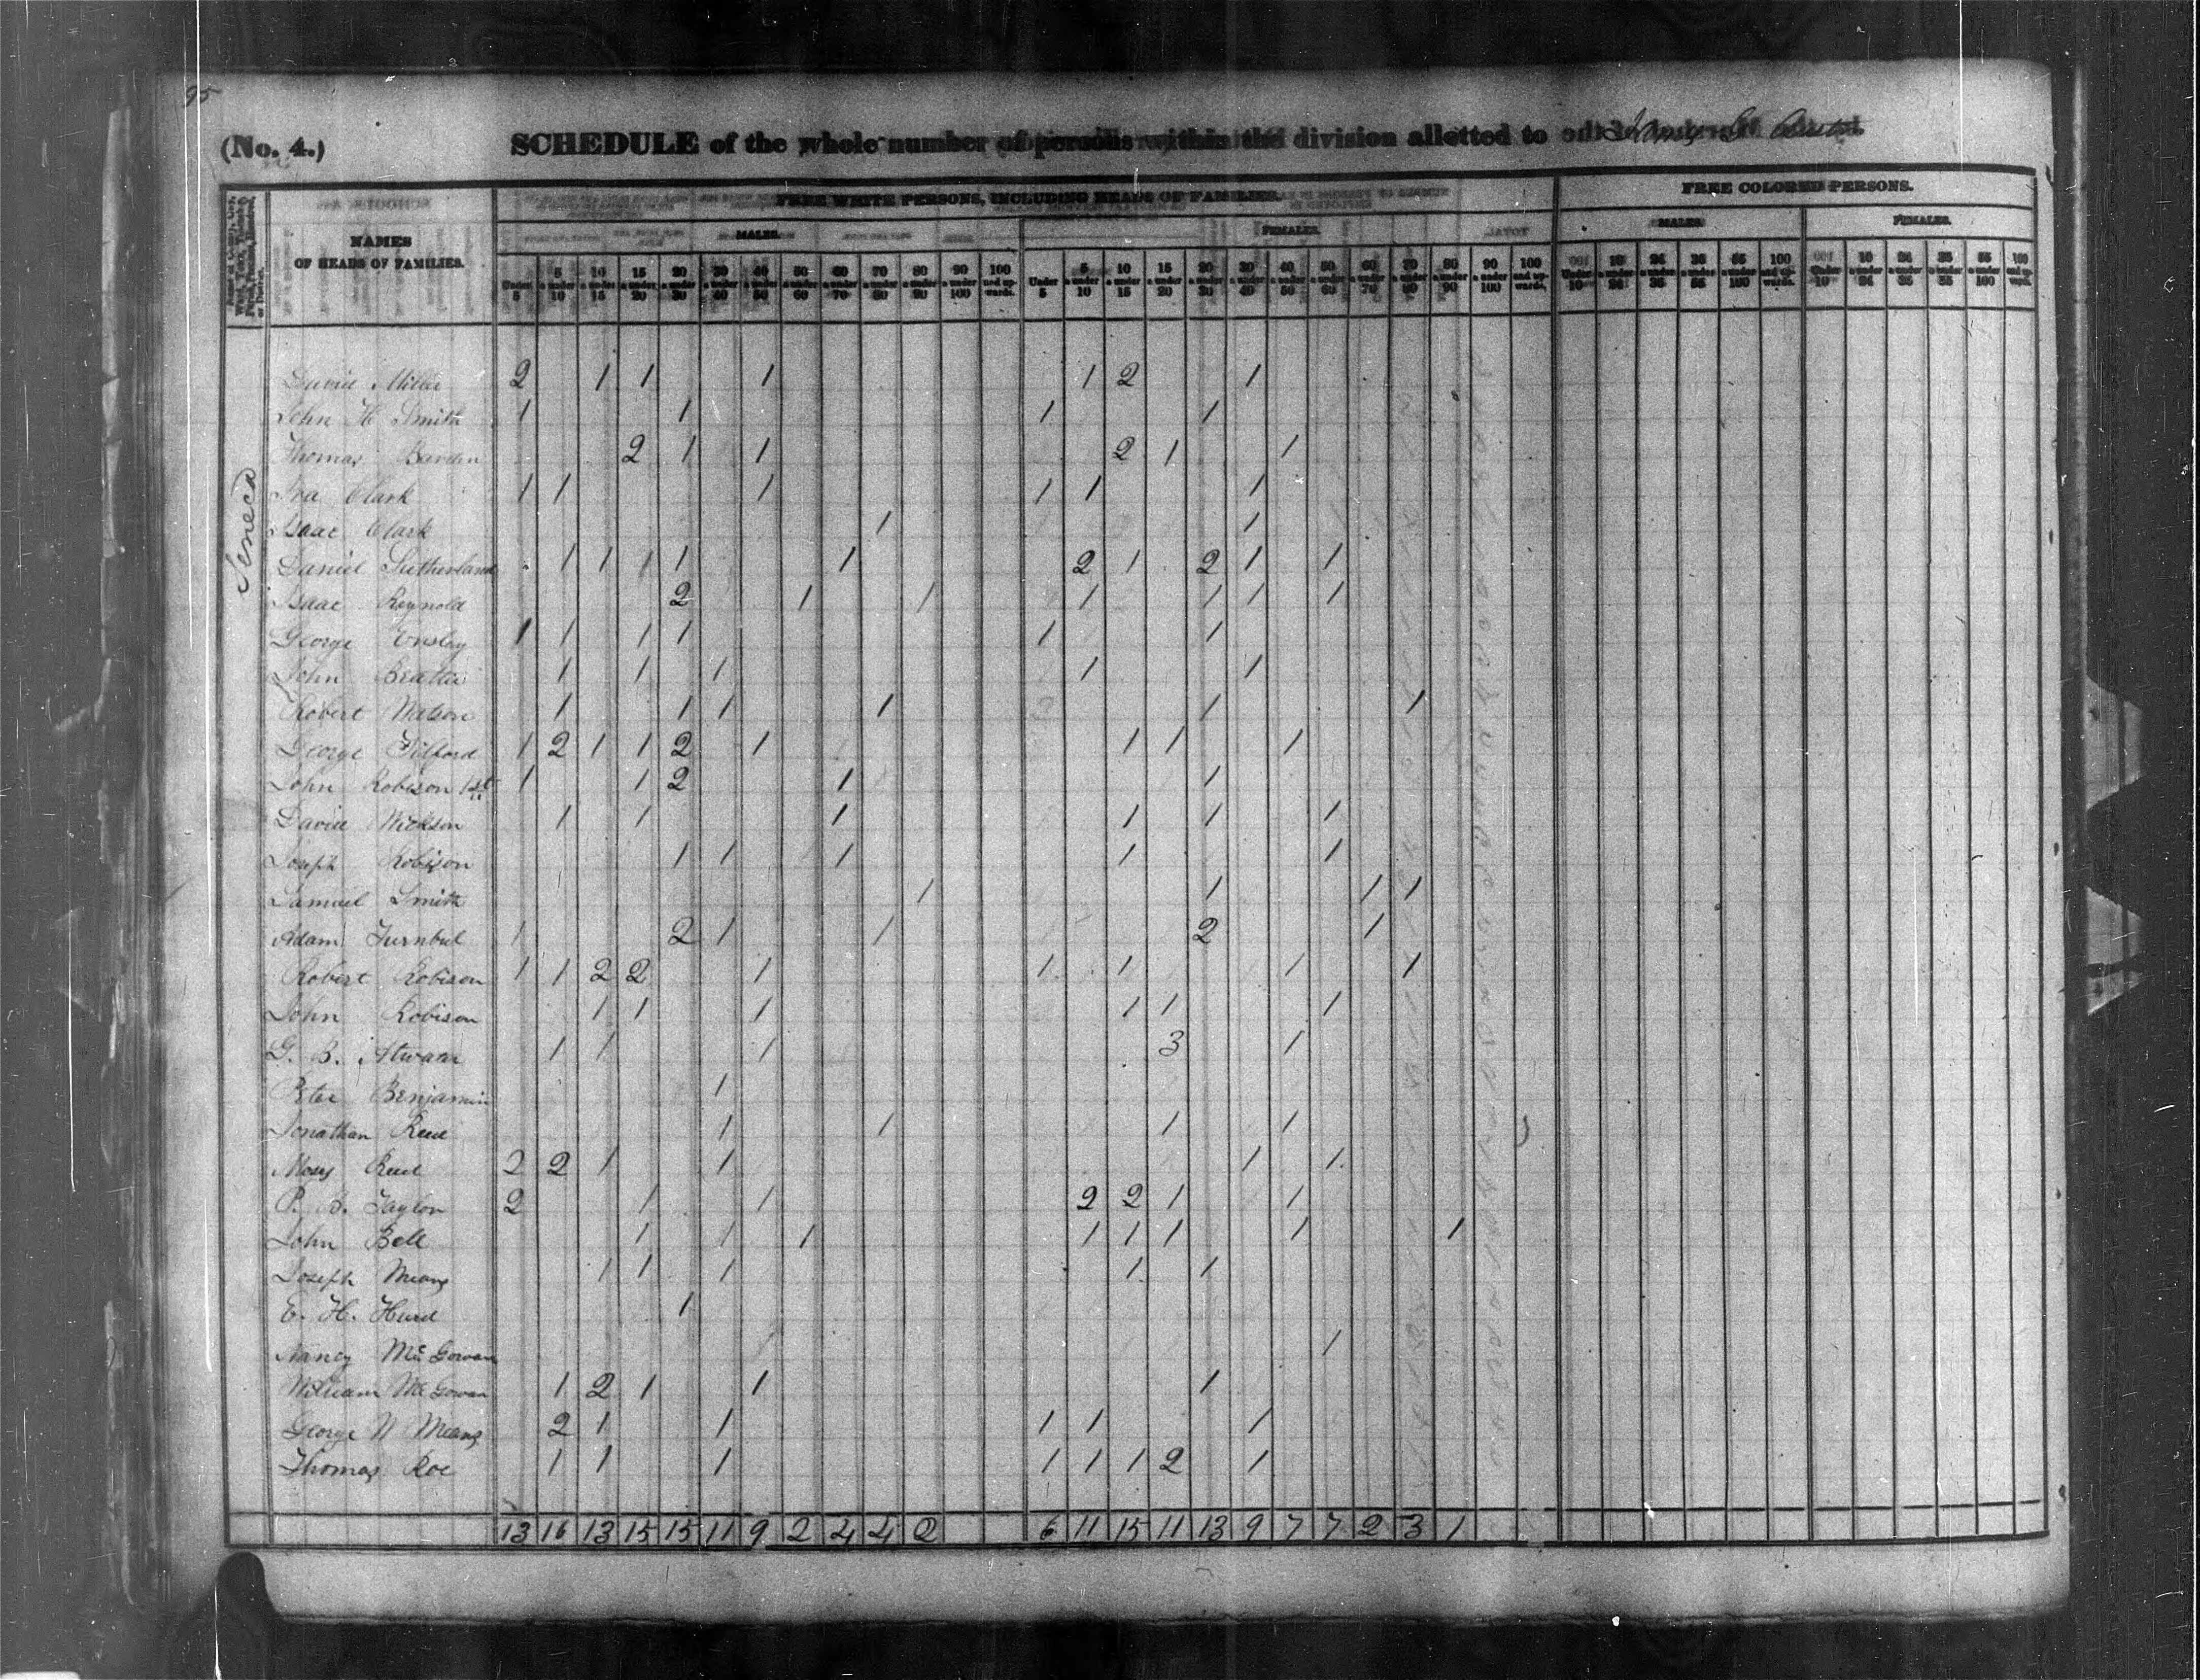 95
(No. 4.) SCHEDULE of the whole number of persons within the division allotted to
FREE WHITE PERSONS, INCLUDING HEADS OF FAMILIES. FREE COLORED PERSONS.
MALES. FEMALES. MALES. FEMALES.
NAMES OF HEADS OF FAMILIES.
Under 5 5 & under 10 10 & under 15 15 & under 20 20 & under 30 30 & under 40 40 & under 50 50 & under 60 60 & under 70 70 & under 80 80 & under 90 90 & under 100 100 and upwards. Under 5 5 & under 10 10 & under 15 15 & under 20 20 & under 30 30 & under 40 40 & under 50 50 & under 60 60 & under 70 70 & under 80 80 & under 90 90 & under 100 100 and upwards. Under 10 10 & under 24 24 & under 36 36 & under 55 55 & under 100 100 and upwards. Under 10 10 & under 24 24 & under 36 36 & under 55 55 & under 100 100 and upwards.
Seneca
David Miller 2 1 1 1 1 2 1
John H Smith 1 1 1 1
Thomas 2 1 1 2 1 1
Ira Clark 1 1 1 1 1 1
Isaac Clark 1 1
Daniel Sutherland 1 1 1 1 1 2 1 2 1 1
Isaac Reynold 2 1 1 1 1 1 1
George Ensley 1 1 1 1 1 1
John Beattie 1 1 1 1 1
Robert Watson 1 1 1 1 1 1
George Tilford 1 2 1 1 2 1 1 1 1
John Robison 1st 1 1 2 1 1
David Wickson 1 1 1 1 1 1
Joseph Robison 1 1 1 1 1
Samuel Smith 1 1 1 1
Adam Turnbul 1 2 1 1 2 1
Robert Robison 1 1 2 2 1 1 1 1 1
John Robison 1 1 1 1 1 1
G. B. 1 1 1 3 1
Peter Benjamin 1
Jonathan Reed 1 1 1 1
Moses Reed 2 2 1 1 1 1
Taylor 2 1 1 2 2 1 1
John Bell 1 1 1 1 1 1 1 1
Joseph Means 1 1 1 1 1
E. H. Hurd 1
Nancy McGowan 1
William McGowan 1 2 1 1 1
George W Means 2 1 1 1 1 1
Thomas Roe 1 1 1 1 1 1 2 1
13 16 13 15 15 11 9 2 4 4 2 6 11 15 11 13 9 7 7 2 3 1